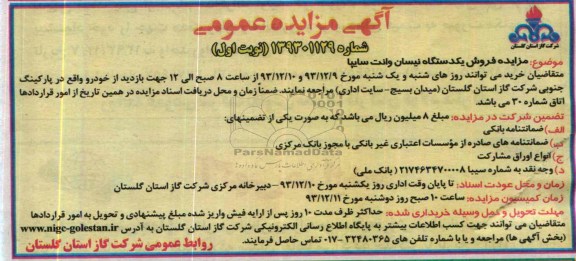 آگهی مزایده عمومی
شماره ۱۳۹۳۰۱۱۴۹ (نوبت اول)
شرکت گاز استان گلستان
موضوع: مزایده فروش یکدستگاه نیسان وانت سایپا
متقاضیان خرید می توانند روز های شنبه و یک شنبه مورخ ۹۳/۱۲/۹ و ۹۳/۱۲/۱۰ از ساعت ۸ صبح الی ۱۲ جهت بازدید از خودرو واقع در پارکینگ
جنوبی شرکت گاز استان گلستان (میدان بسیج- سایت اداری) مراجعه نمایند. ضمناً زمان و محل دریافت اسناد مزایده در همین تاریخ از امور قراردادها
اتاق شماره ۳۰ می باشد.
تضمین شرکت در مزایده: مبلغ ۸ میلیون ریال می باشد که به صورت یکی از تضمینهای:
الف) ضمانتنامه بانکی
ب) ضمانتنامه های صادره از مؤسسات اعتباری غیر بانکی با مجوز بانک مرکزی
ج) انواع اوراق مشارکت
د) وجه نقد به شماره سیبا ۲۱۷۴۶۳۴۷۰۰۰۰۸ (بانک ملی)
زمان و محل عودت اسناد: تا پایان وقت اداری روز یکشنبه مورخ ۹۳/۱۲/۱۰ - دبیرخانه مرکزی شرکت گاز استان گلستان
زمان کمیسیون مزایده: ساعت ۱۰ صبح روز دوشنبه مورخ ۹۳/۱۲/۱۱
مهلت تحویل و حمل وسیله خریداری شده: حداکثر ظرف مدت ۱۰ روز پس از ارایه فیش واریز شده مبلغ پیشنهادی و تحویل به امور قراردادها
متقاضیان می توانند جهت کسب اطلاعات بیشتر به پایگاه اطلاع رسانی الکترونیکی شرکت گاز استان گلستان به آدرس www.nigc-golestan.ir
(بخش آگهی ها) مراجعه و یا با شماره تلفن های ۳۲۴۸۰۳۶۵ -۰۱۷ تماس حاصل فرمایند.
روابط عمومی شرکت گاز استان گلستان
ParsNamadData